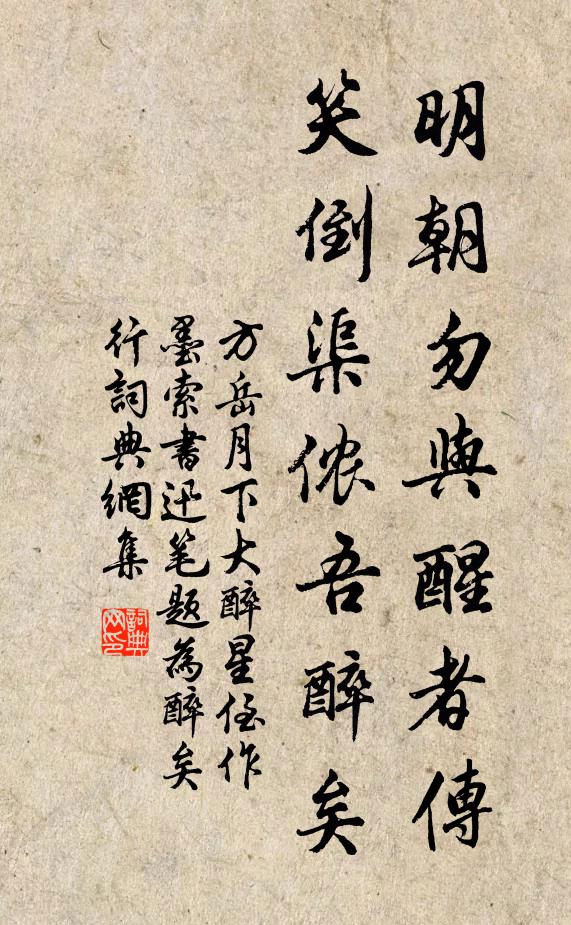 明朝勿與醒者傳
笑倒渠儂吾醉矣
方岳月下大醉星侄作
墨索書迅笔题為醉矣
行詞典網集
詞典
网印